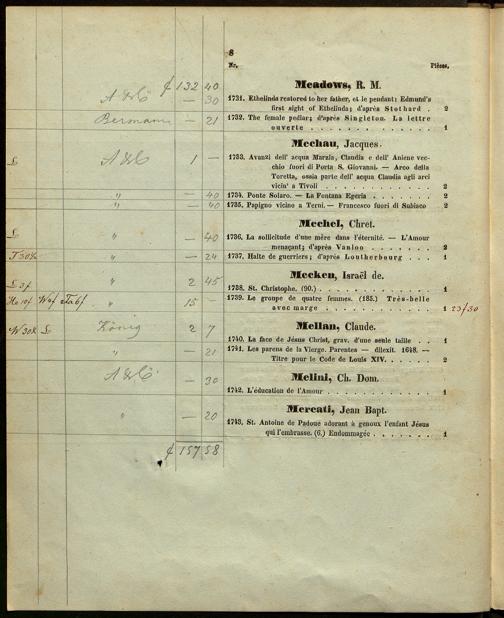 8
Nr. Pièces.
₡ 132 40
Meadows, R. M.
A & C — 30 1731. Ethelinda restored to her father, et le pendant: Edmund's
first sight of Ethelinda; d'après Stothard . 2
Bermann — 21 1732. The female pedlar; d'après Singleton. La lettre
ouverte . . . . . . . . . . . . 1
Mechau, Jacques.
£ A & C 1 — 1733. Avanzi dell' acqua Marzia, Claudia e dell' Aniene vec-
chio fuori di Porta S. Giovanni. — Arco della
Toretta, ossia parte dell' acqua Claudia agli arci
vicin' a Tivoli . . . . . . . . . . 2
" — 40 1734. Ponte Solaro. — La Fontana Egeria . . . . 2
" — 40 1735. Papigno vicino a Terni. — Francesco fuori di Subiaco 2
Mechel, Chret.
£ " — 40 1736. La sollicitude d'une mère dans l'éternité. — L'Amour
menaçant; d'après Vanloo . . . . . . . 2
" — 24 1737. Halte de guerriers; d'après Loutherbourg . . 1
Mecken, Israël de.
" 2 45 1738. St. Christophe. (90.) . . . . . . . . . 1
" 15 — 1739. Le groupe de quatre femmes. (185.) Très-belle
avec marge . . . . . . . . . . . 1 23/30
Mellan, Claude.
König 2 7 1740. La face de Jésus Christ, grav. d'une seule taille . . 1
" — 21 1741. Les parens de la Vierge. Parentes — dilexit. 1648. —
Titre pour le Code de Louis XIV. . . . . . 2
Melini, Ch. Dom.
A & C — 30 1742. L'éducation de l'Amour . . . . . . . . 1
Mercati, Jean Bapt.
" — 20 1743. St. Antoine de Padoue adorant à genoux l'enfant Jésus
qui l'embrasse. (6.) Endommagée . . . . . . 1
₡ 157 58